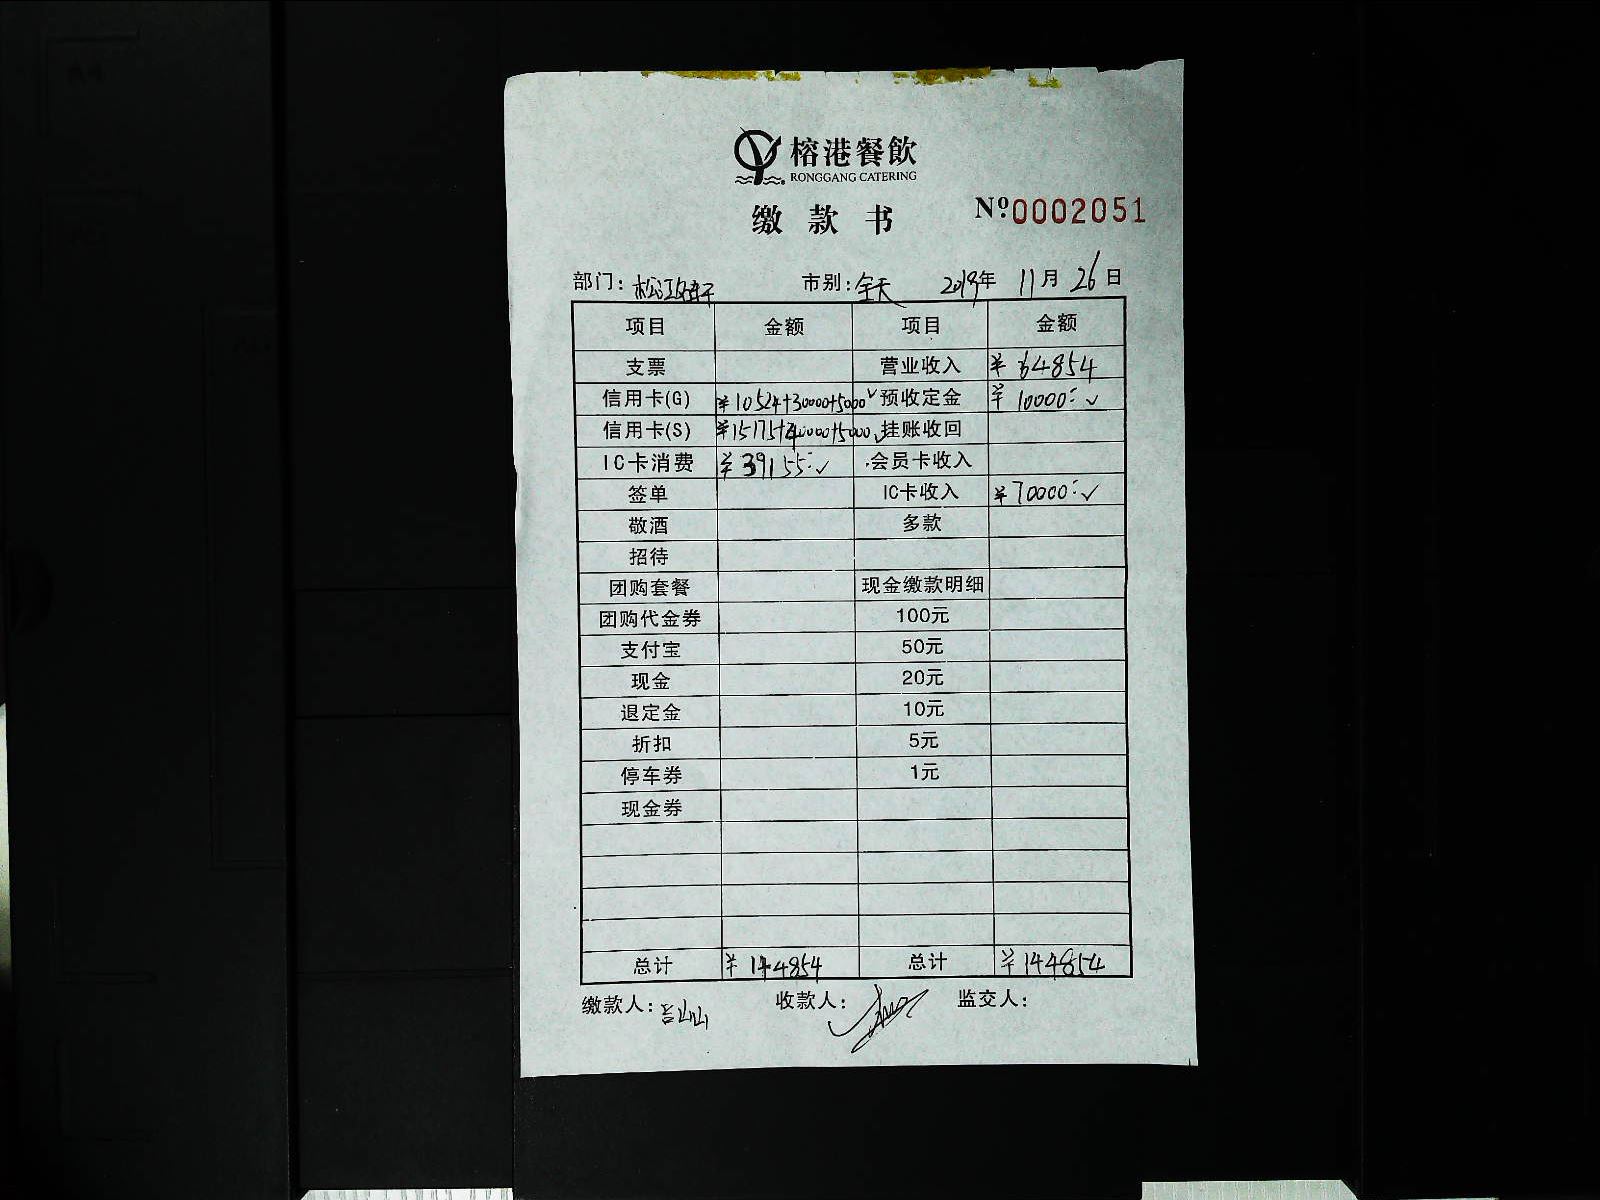 榕港餐飲
RONGGANG CATERING
缴款书 Nº0002051
部门: 松江路 市别: 全天 2019年 11月 26日
项目 金额 项目 金额
支票 营业收入 ¥64854
信用卡(G) ¥10524+30000+5000✓ 预收定金 ¥10000:✓
信用卡(S) ¥15175+40000+5000✓ 挂账收回
IC卡消费 ¥39155:✓ 会员卡收入
签单 IC卡收入 ¥70000:✓
敬酒 多款
招待
团购套餐 现金缴款明细
团购代金券 100元
支付宝 50元
现金 20元
退定金 10元
折扣 5元
停车券 1元
现金券
总计 ¥144854 总计 ¥144854
缴款人: 收款人: 监交人: